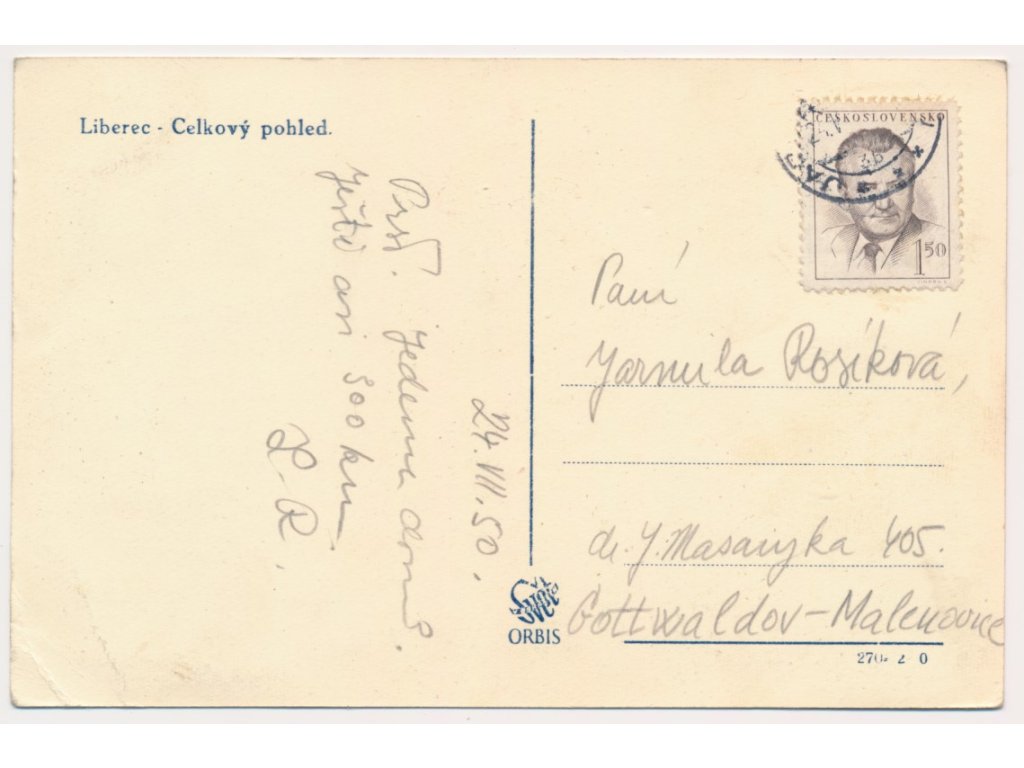 Liberec - Celkový pohled.
Prší. Jedeme domů.
Ještě asi 300 km
L. R.
24. VII. 50.
ORBIS
ČESKOSLOVENSKO
1 50
Paní
Jarmila Rosíková,
dr. J. Masaryka 405.
Gottwaldov-Malenovice
270 2 0